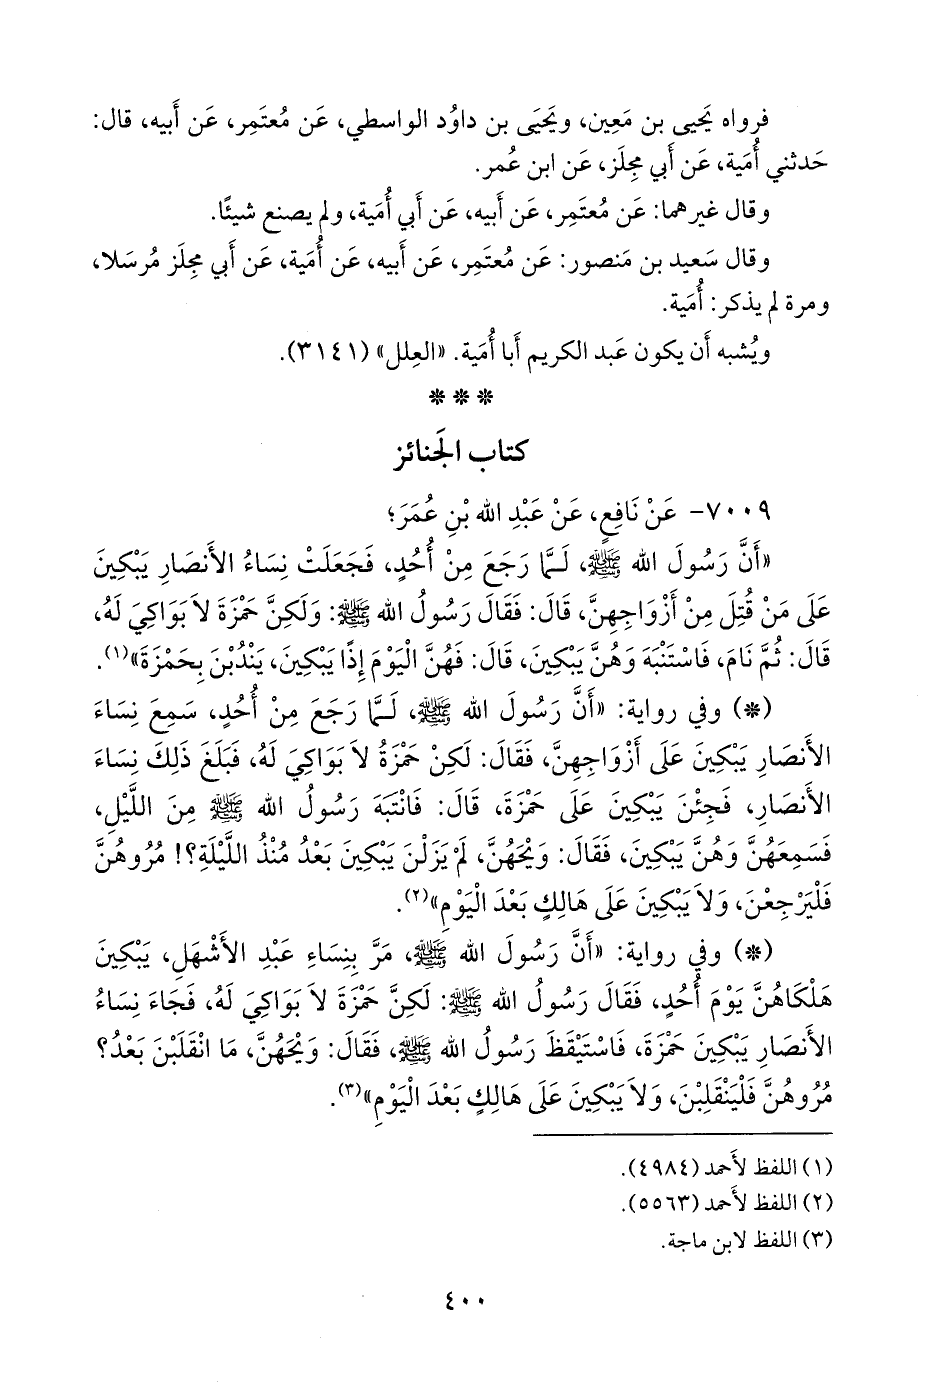 فرواه يَحيى بن مَعِين، ويَحيَى بن داوُد الواسطي، عَن مُعتَمِر، عَن أَبيه، قال:
حَدثني أُمَية، عَن أَبي مِجلَز، عَن ابن عُمر.
وقال غيرهما: عَن مُعتَمِر، عَن أَبيه، عَن أَبي أُمَية، ولم يصنع شيئًا.
وقال سَعيد بن مَنصور: عَن مُعتَمِر، عَن أَبيه، عَن أُمَية، عَن أَبي مِجلَز مُرسَلا،
ومرة لم يذكر: أُمَية.
ويُشبه أَن يكون عَبد الكريم أَبا أُمَية. «العِلل» (٣١٤١).
* * *
كتاب الجَنائز
٧٠٠٩- عَنْ نَافِعٍ، عَنْ عَبْدِ الله بْنِ عُمَرَ؛
«أَنَّ رَسُولَ الله ﷺ، لَـمَّا رَجَعَ مِنْ أُحُدٍ، فَجَعَلَتْ نِسَاءُ الأَنصَارِ يَبْكِينَ
عَلَى مَنْ قُتِلَ مِنْ أَزْوَاجِهِنَّ، قَالَ: فَقَالَ رَسُولُ الله ﷺ: وَلَكِنَّ حَمْزَةَ لاَ بَوَاكِيَ لَهُ،
قَالَ: ثُمَّ نَامَ، فَاسْتَنْبَهَ وَهُنَّ يَبْكِينَ، قَالَ: فَهُنَّ الْيَوْمَ إِذًا يَبْكِينَ، يَنْدُبْنَ بِحَمْزَةَ»(١).
(*) وفي رواية: «أَنَّ رَسُولَ الله ﷺ، لَـمَّا رَجَعَ مِنْ أُحُدٍ، سَمِعَ نِسَاءَ
الأَنصَارِ يَبْكِينَ عَلَى أَزْوَاجِهِنَّ، فَقَالَ: لَكِنْ حَمْزَةُ لاَ بَوَاكِيَ لَهُ، فَبَلَغَ ذَلِكَ نِسَاءَ
الأَنصَارِ، فَجِئْنَ يَبْكِينَ عَلَى حَمْزَةَ، قَالَ: فَانْتَبَهَ رَسُولُ الله ﷺ مِنَ اللَّيْلِ،
فَسَمِعَهُنَّ وَهُنَّ يَبْكِينَ، فَقَالَ: وَيْحَهُنَّ، لَمْ يَزَلْنَ يَبْكِينَ بَعْدُ مُنْذُ اللَّيْلَةِ؟! مُرُوهُنَّ
فَلْيَرْجِعْنَ، وَلاَ يَبْكِينَ عَلَى هَالِكٍ بَعْدَ الْيَوْمِ»(٢).
(*) وفي رواية: «أَنَّ رَسُولَ الله ﷺ، مَرَّ بِنِسَاءِ عَبْدِ الأَشْهَلِ، يَبْكِينَ
هَلْكَاهُنَّ يَوْمَ أُحُدٍ، فَقَالَ رَسُولُ الله ﷺ: لَكِنَّ حَمْزَةَ لاَ بَوَاكِيَ لَهُ، فَجَاءَ نِسَاءُ
الأَنصَارِ يَبْكِينَ حَمْزَةَ، فَاسْتَيْقَظَ رَسُولُ الله ﷺ، فَقَالَ: وَيْحَهُنَّ، مَا انْقَلَبْنَ بَعْدُ؟
مُرُوهُنَّ فَلْيَنْقَلِبْنَ، وَلاَ يَبْكِينَ عَلَى هَالِكٍ بَعْدَ الْيَوْمِ»(٣).
(١) اللفظ لأَحمد (٤٩٨٤).
(٢) اللفظ لأَحمد (٥٥٦٣).
(٣) اللفظ لابن ماجة.
٤٠٠